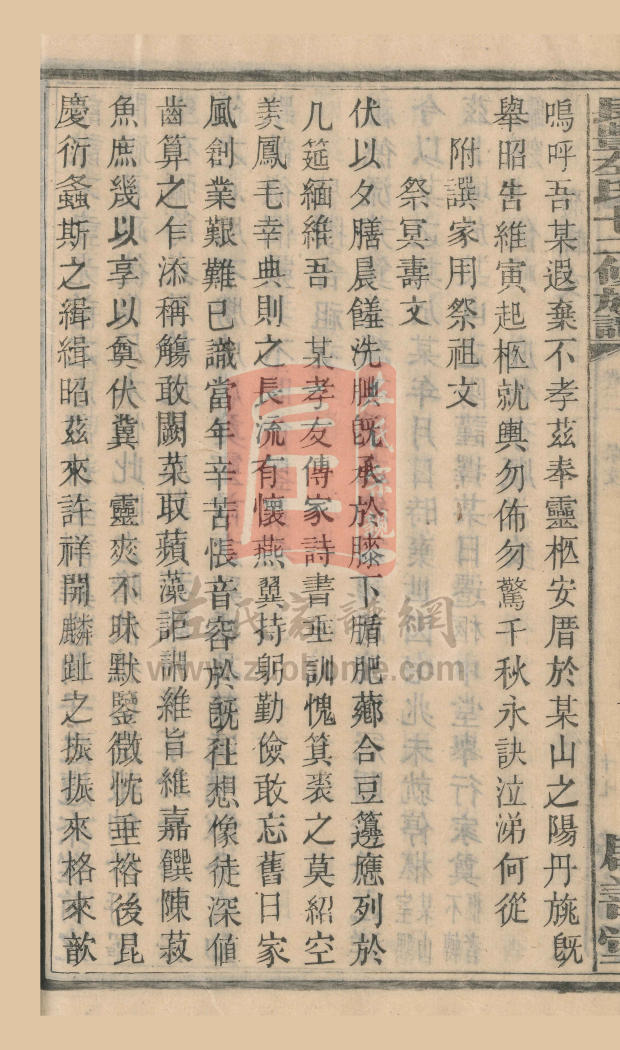 嗚呼吾某遐棄不孝茲奉靈柩安厝於某山之陽丹旐旣
舉昭告維寅起柩就輿勿佈勿驚千秋永訣泣涕何從
附譔家用祭祖文
祭冥壽文
伏以夕膳晨饈洗腆旣承於膝下腯肥薌合豆籩應列於
几筵緬維吾 某孝友傳家詩書垂訓愧箕裘之莫紹空
羨鳳毛幸典則之長流有懷燕翼持躬勤儉敢忘舊日家
風創業艱難已識當年辛苦悵音容於旣往想像徒深値
齒算之乍添稱觴敢闕菜取蘋藻詎謂維旨維嘉饌陳菽
魚庶幾以享以奠伏冀 靈爽不昧默鑒微忱垂裕後昆
慶衍螽斯之緝緝昭茲來許祥開麟趾之振振來格來歆
左氏家譜網
www.zuohome.com